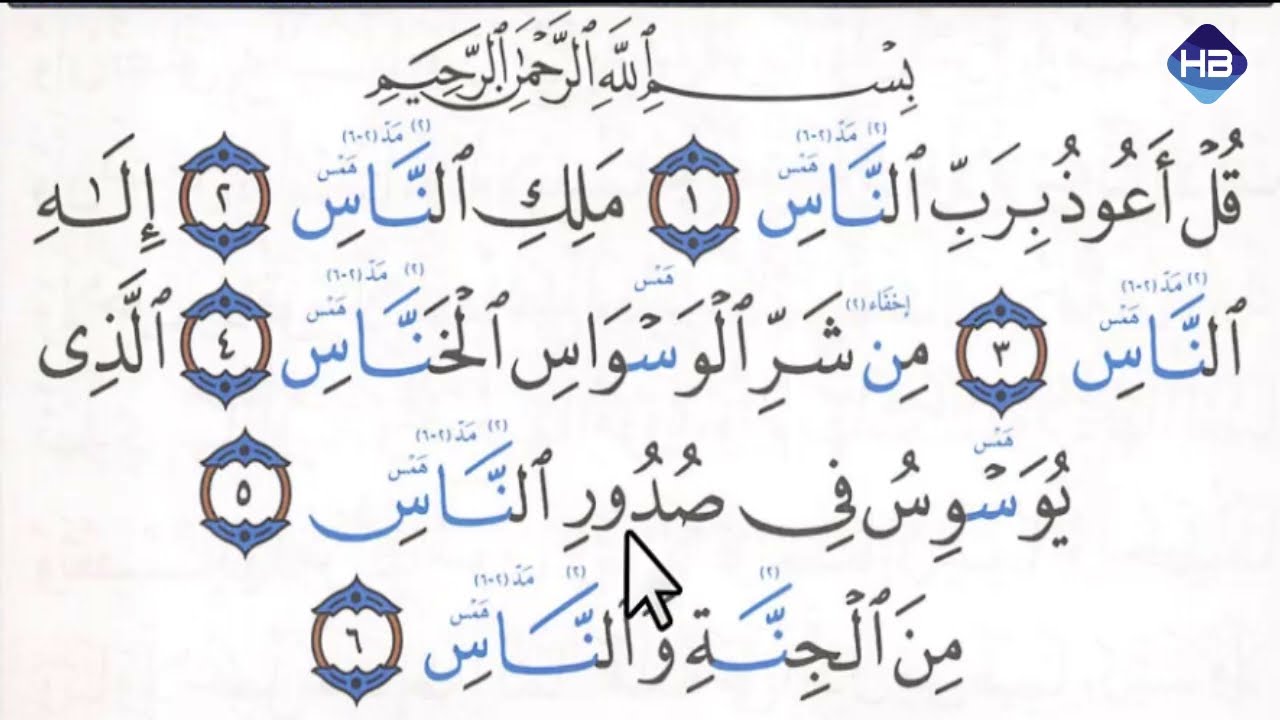 HB
بِسْمِ ٱللَّهِ ٱلرَّحْمَٰنِ ٱلرَّحِيمِ
(٢) مَدّ (٢-٦) (٢) مَدّ (٢-٦)
هَمْس هَمْس
قُلْ أَعُوذُ بِرَبِّ ٱلنَّاسِ ١ مَلِكِ ٱلنَّاسِ ٢ إِلَـٰهِ
(٢) مَدّ (٢-٦) إخفَاء (٢) هَمْس (٢) مَدّ (٢-٦)
هَمْس هَمْس
ٱلنَّاسِ ٣ مِن شَرِّ ٱلْوَسْوَاسِ ٱلْخَنَّاسِ ٤ ٱلَّذِى
هَمْس (٢) مَدّ (٢-٦)
هَمْس
يُوَسْوِسُ فِى صُدُورِ ٱلنَّاسِ ٥
(٢) (٢) مَدّ (٢-٦)
هَمْس
مِنَ ٱلْجِنَّةِ وَٱلنَّاسِ ٦